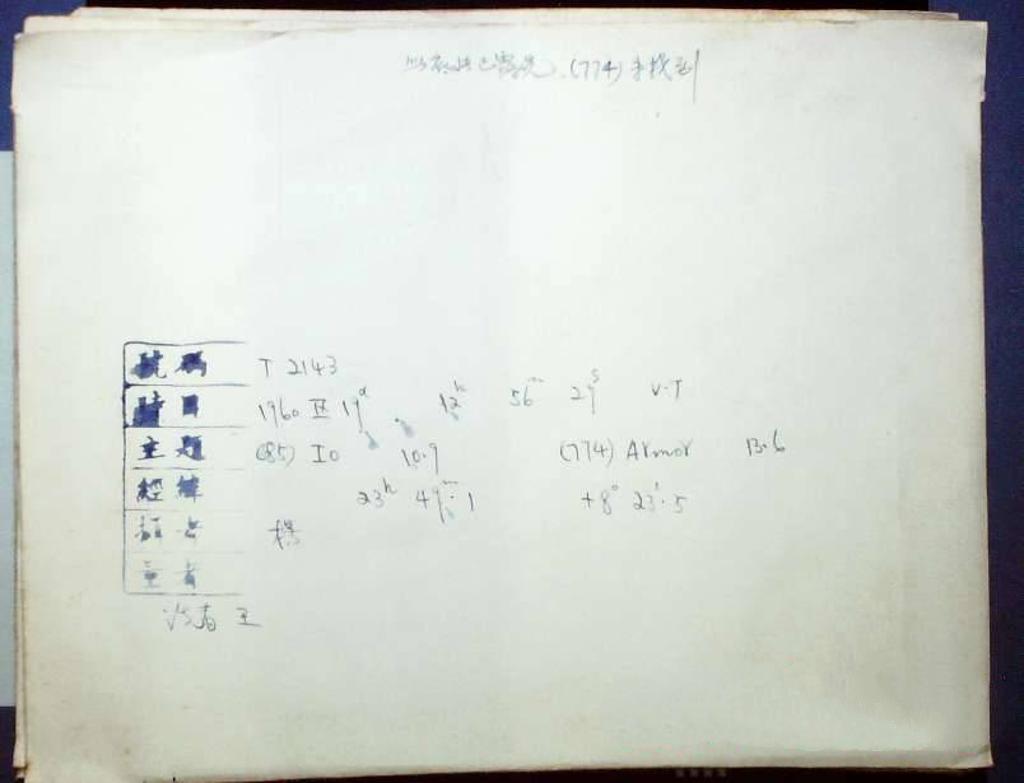 (774) 未找到
號碼 T 2143
時日 1960 IX 19ᵈ 12ʰ 56ᵐ 29ˢ U.T
主題 (85) Io 10.9 (774) Armor 13.6
經緯 23ʰ 49ᵐ.1 +8° 23'.5
楊
量者
王